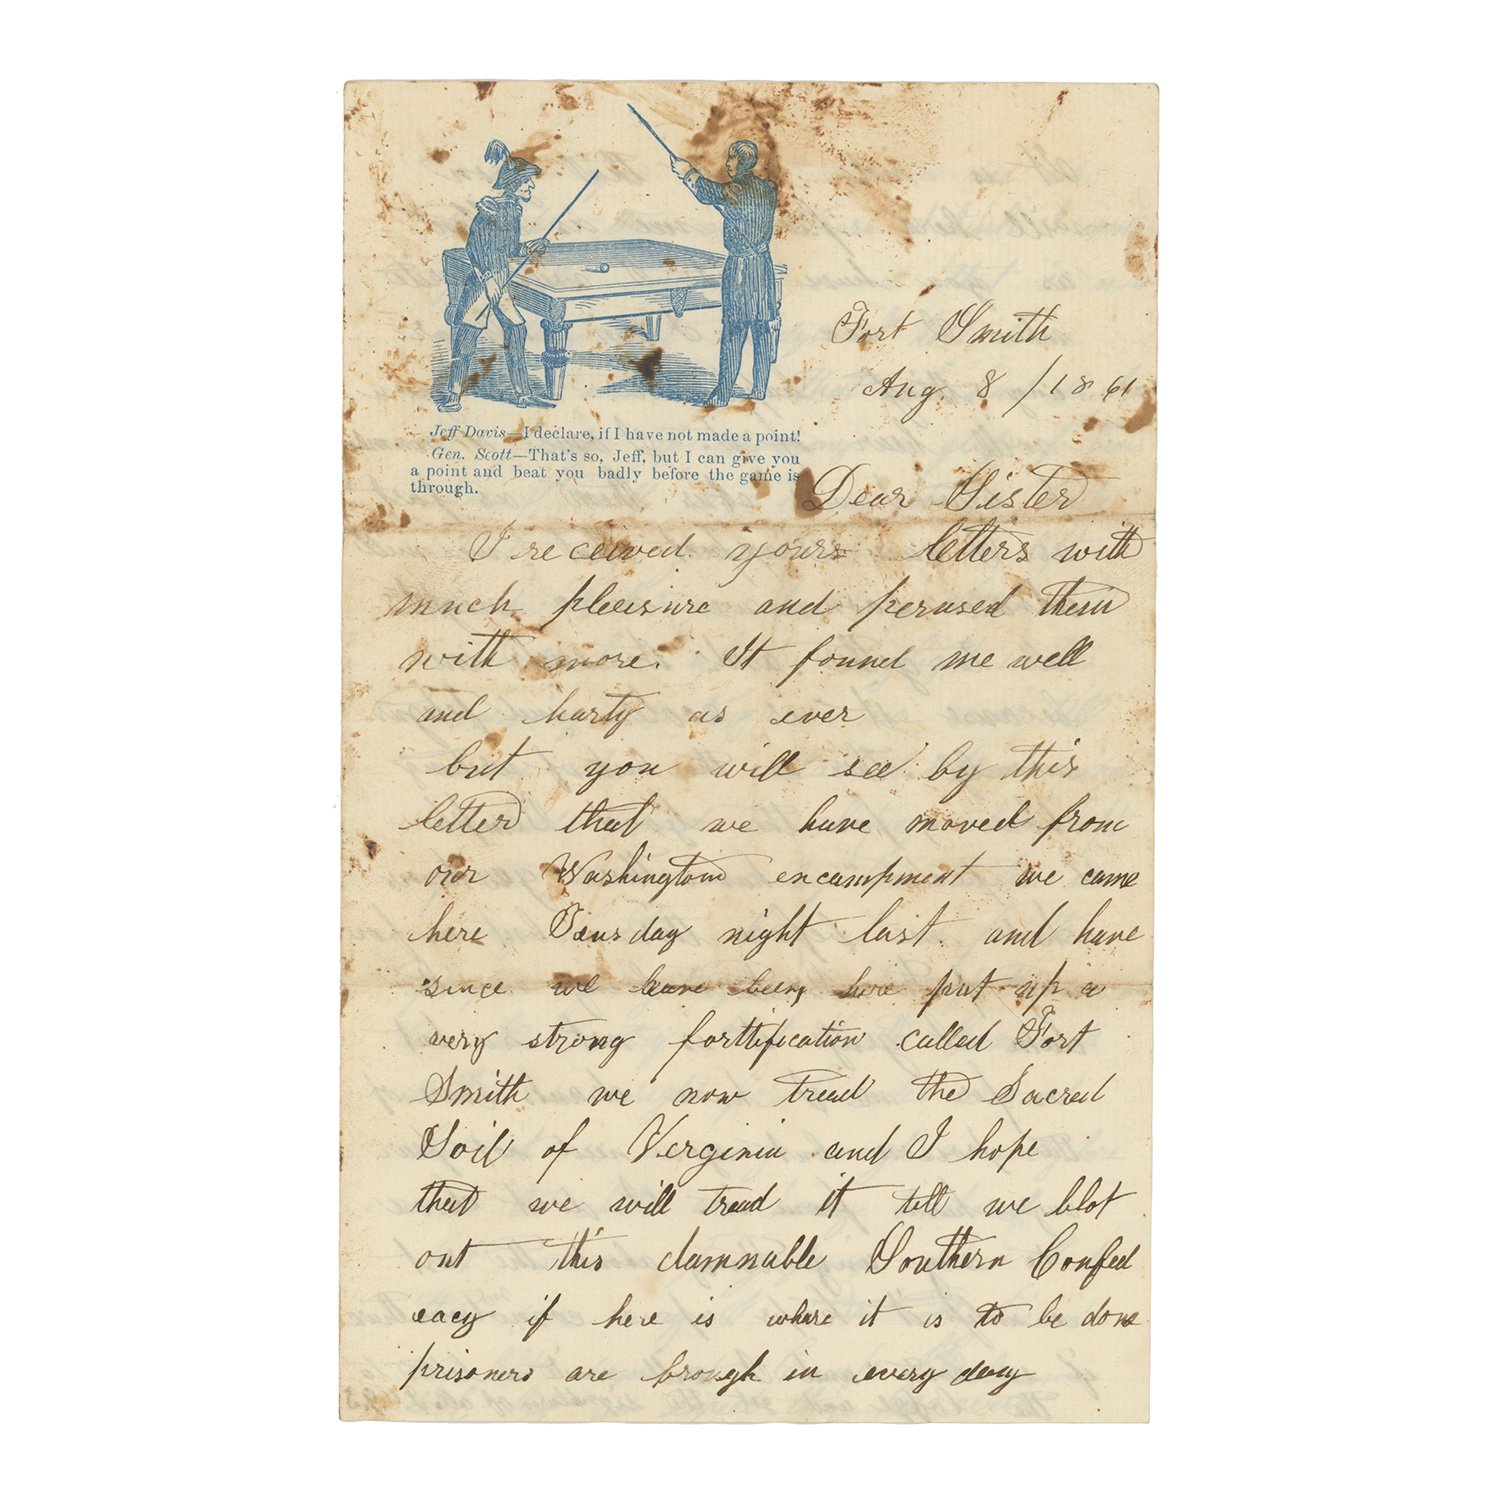 Jeff Davis—I declare, if I have not made a point!
Gen. Scott—That's so, Jeff, but I can give you
a point and beat you badly before the game is
through.
Fort Smith
Aug. 8 / 1861
Dear Sister
I received yours letters with
much pleasure and perused them
with more. It found me well
and harty as ever
but you will see by this
letter that we have moved from
our Washington encampment we came
here Teusday night last and have
since we have been here put up a
very strong forttification called Fort
Smith we now tread the Sacred
Soil of Verginia and I hope
that we will tread it till we blot
out this damnable Southern Confed
eacy if here is where it is to be done
prisoners are brough in every day